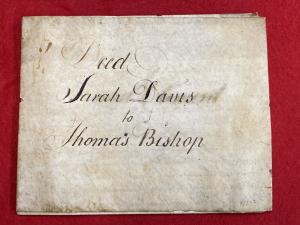 Deed
Sarah Davis
to
Thomas Bishop